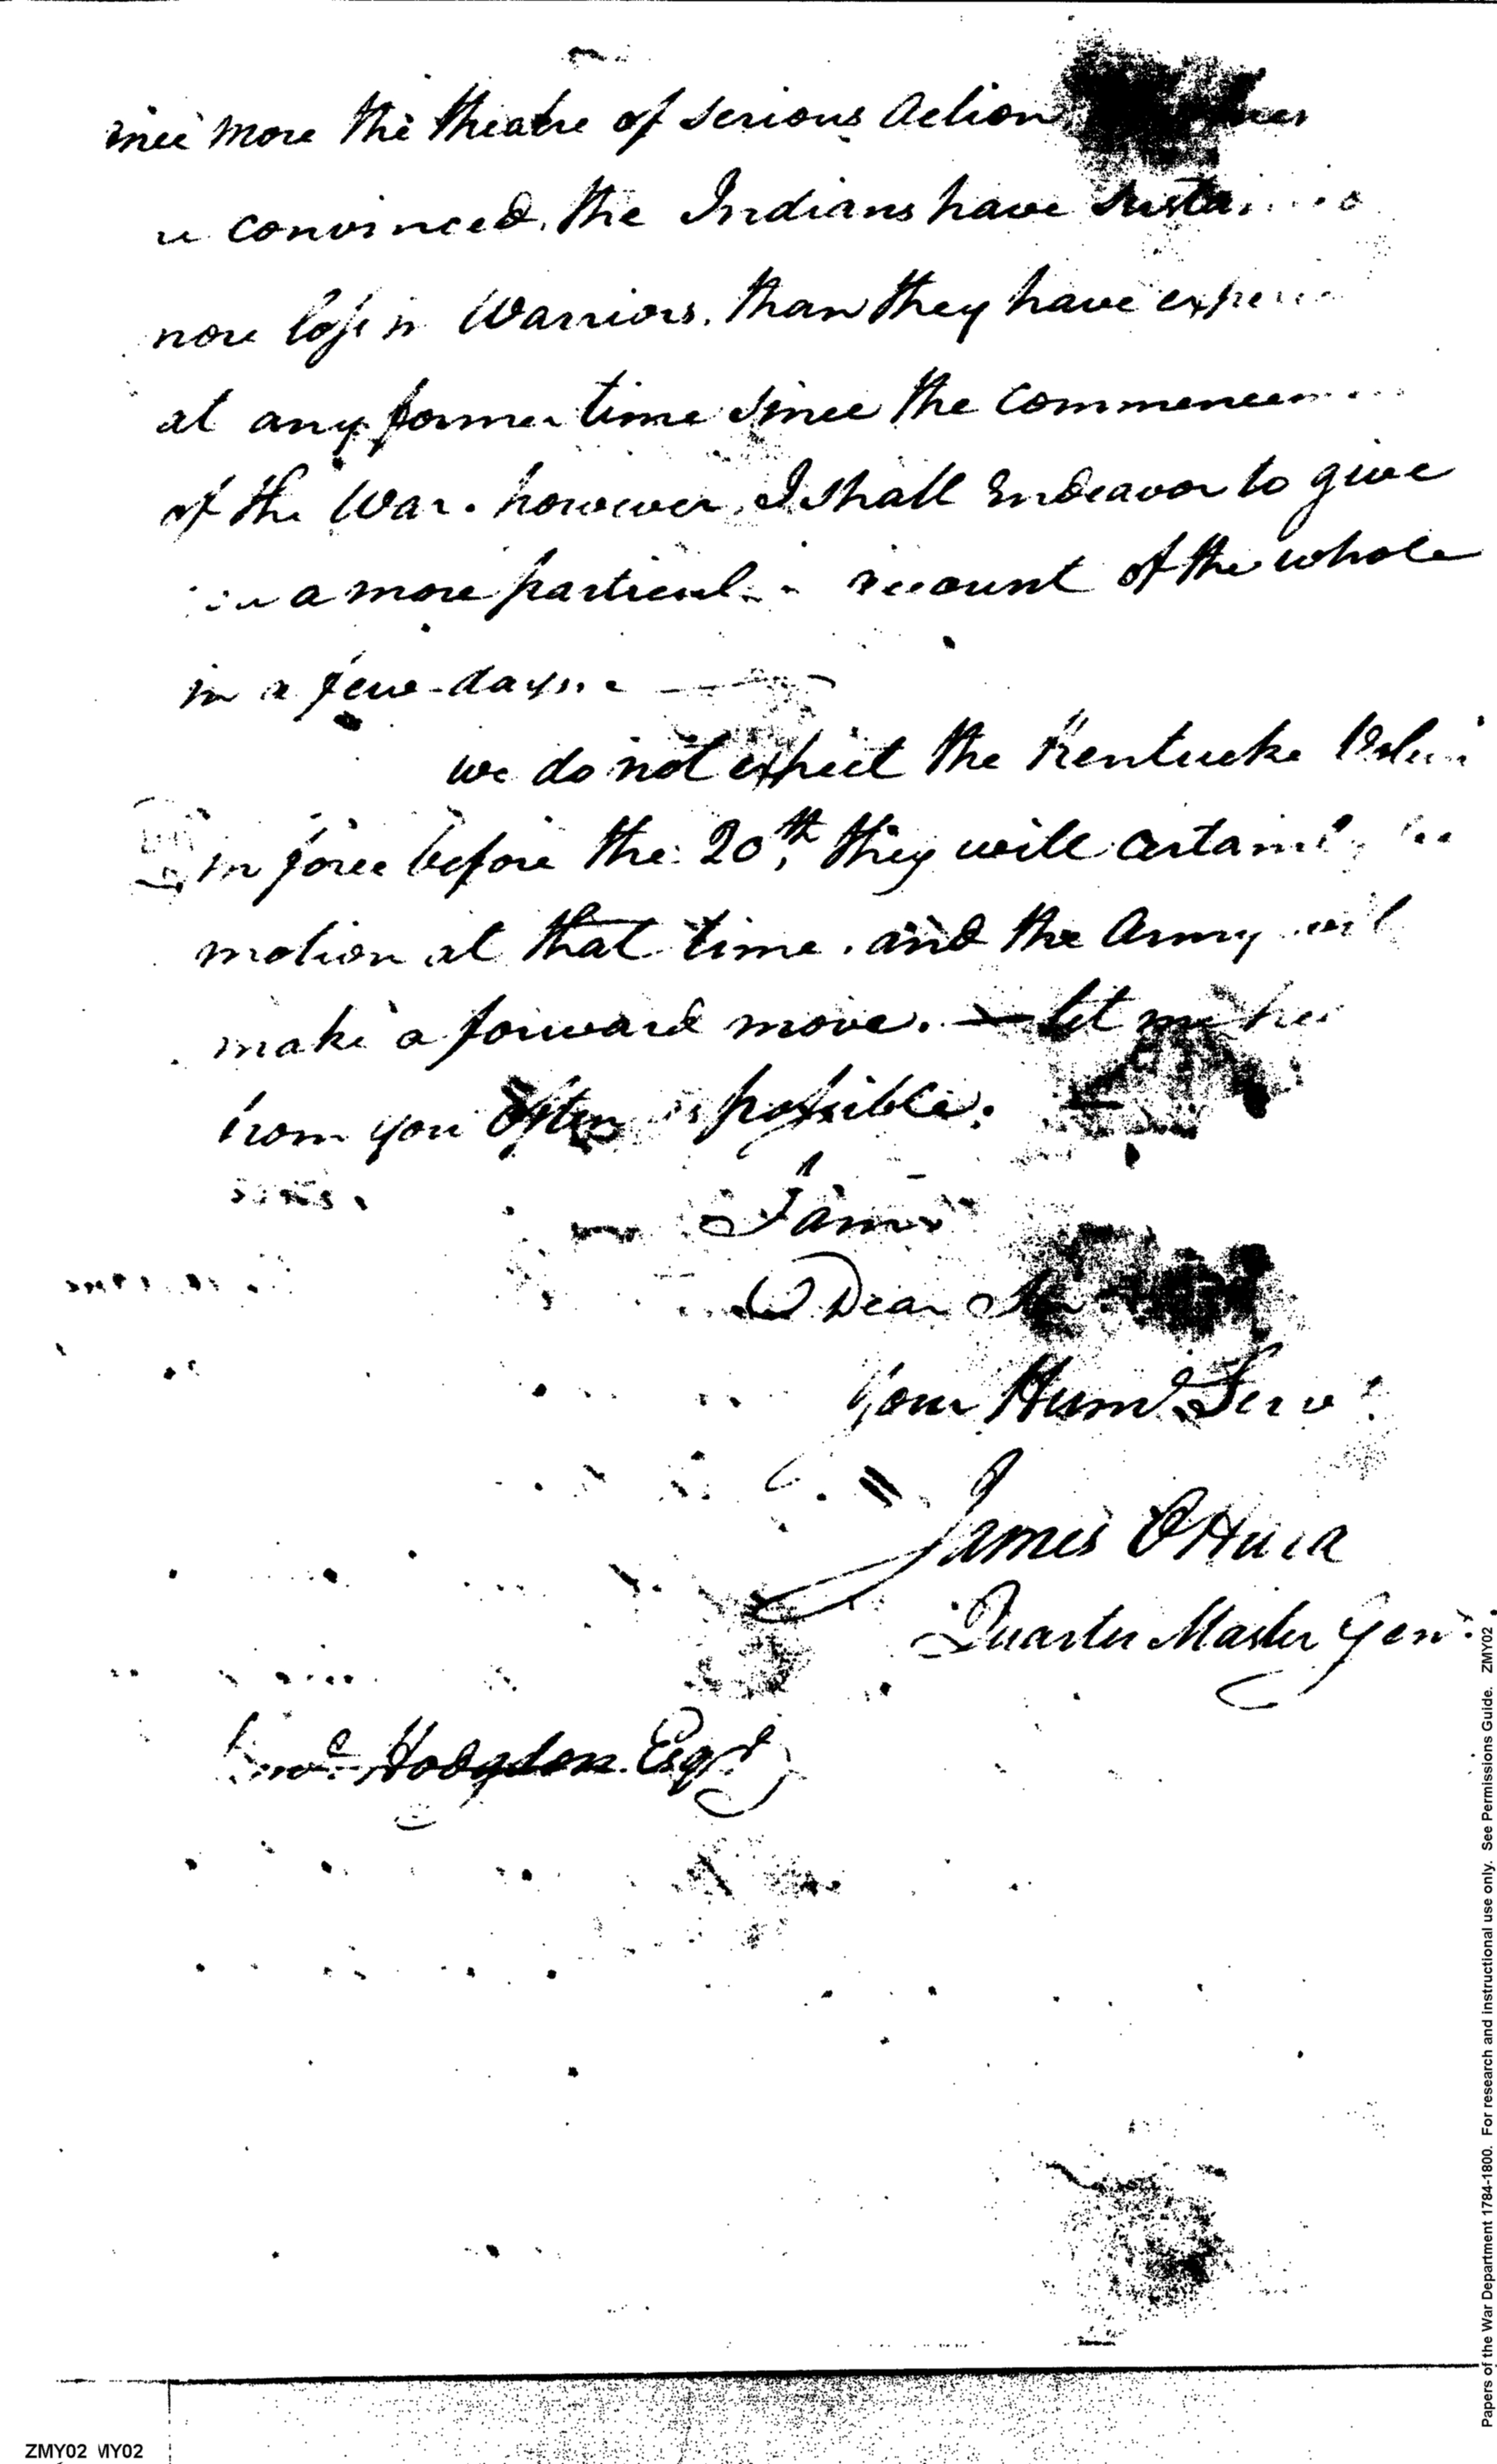 more the theatre of serious action
convinced, the Indians have
more loss in Warriors, than they have
at any former time since the
of the War. however, I shall Endeavor to give
a more account of the whole
in a few days.
we do not expect the Kentucke
in force before the 20th, they will
motion at that time. and the Army will
make a forward move. — let me
from you often as possible.
I am
Dear Sir
Your Humle Servt
James OHara
Quarter Master Genl.
Hodgdon Esqr
Papers of the War Department 1784-1800. For research and instructional use only. See Permissions Guide. ZMY02
ZMY02 MY02